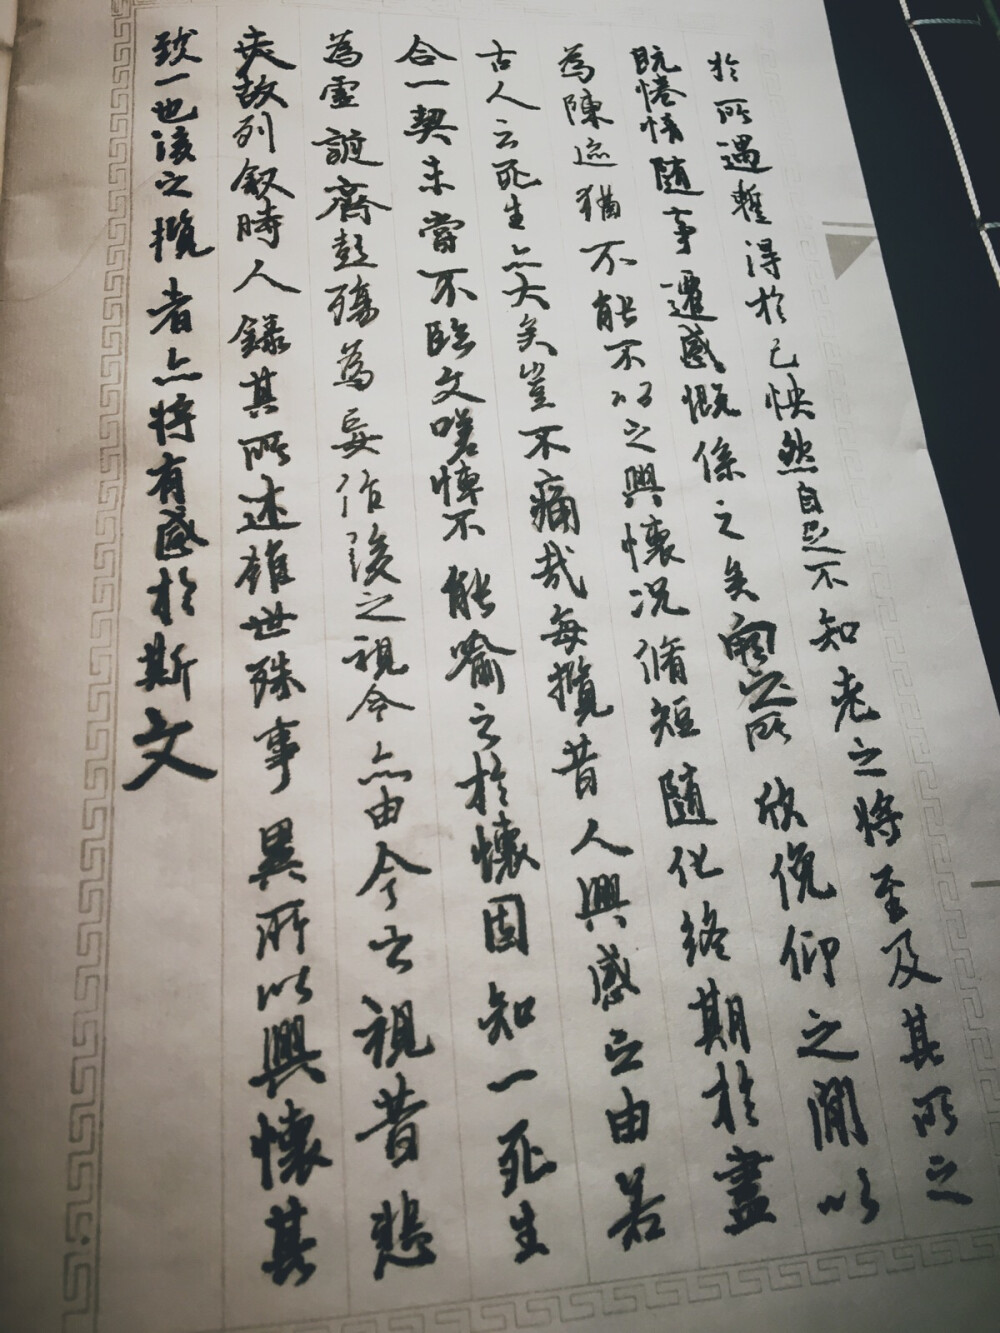 於所遇暫得於己怏然自足不知老之將至及其所之
既惓情隨事遷感慨係之矣向之所欣俛仰之閒以
為陳迹猶不能不以之興懷況脩短隨化終期於盡
古人云死生亦大矣豈不痛哉每攬昔人興感之由若
合一契未嘗不臨文嗟悼不能喻之於懷固知一死生
為虛誕齊彭殤為妄作後之視今亦由今之視昔悲
夫故列叙時人錄其所述雖世殊事異所以興懷其
致一也後之攬者亦將有感於斯文